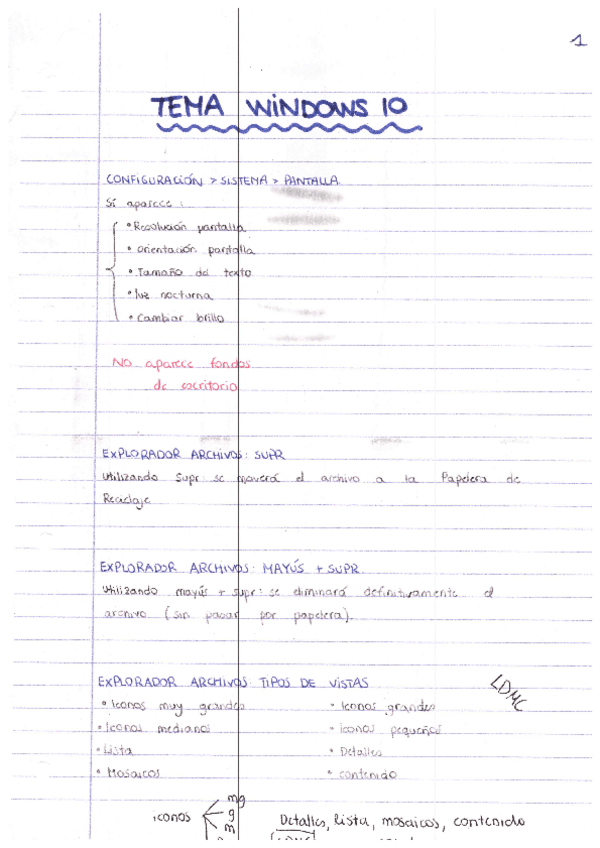 1
TEMA WINDOWS 10
CONFIGURACIÓN > SISTEMA > PANTALLA
Sí aparece:
• Resolución pantalla
• Orientación pantalla
• Tamaño del texto
• luz nocturna
• Cambiar brillo
NO aparece fondos
de escritorio
EXPLORADOR ARCHIVOS: SUPR
Utilizando Supr se moverá el archivo a la Papelera de
Reciclaje
EXPLORADOR ARCHIVOS: MAYÚS + SUPR.
Utilizando mayús + supr: se eliminará definitivamente el
archivo (sin pasar por papelera).
EXPLORADOR ARCHIVOS: TIPOS DE VISTAS
LDMC
• Iconos muy grandes • Iconos grandes
• Iconos medianos • Iconos pequeños
• Lista • Detalles
• Mosaicos • contenido
mg
iconos g Detalles, lista, mosaicos, contenido
m